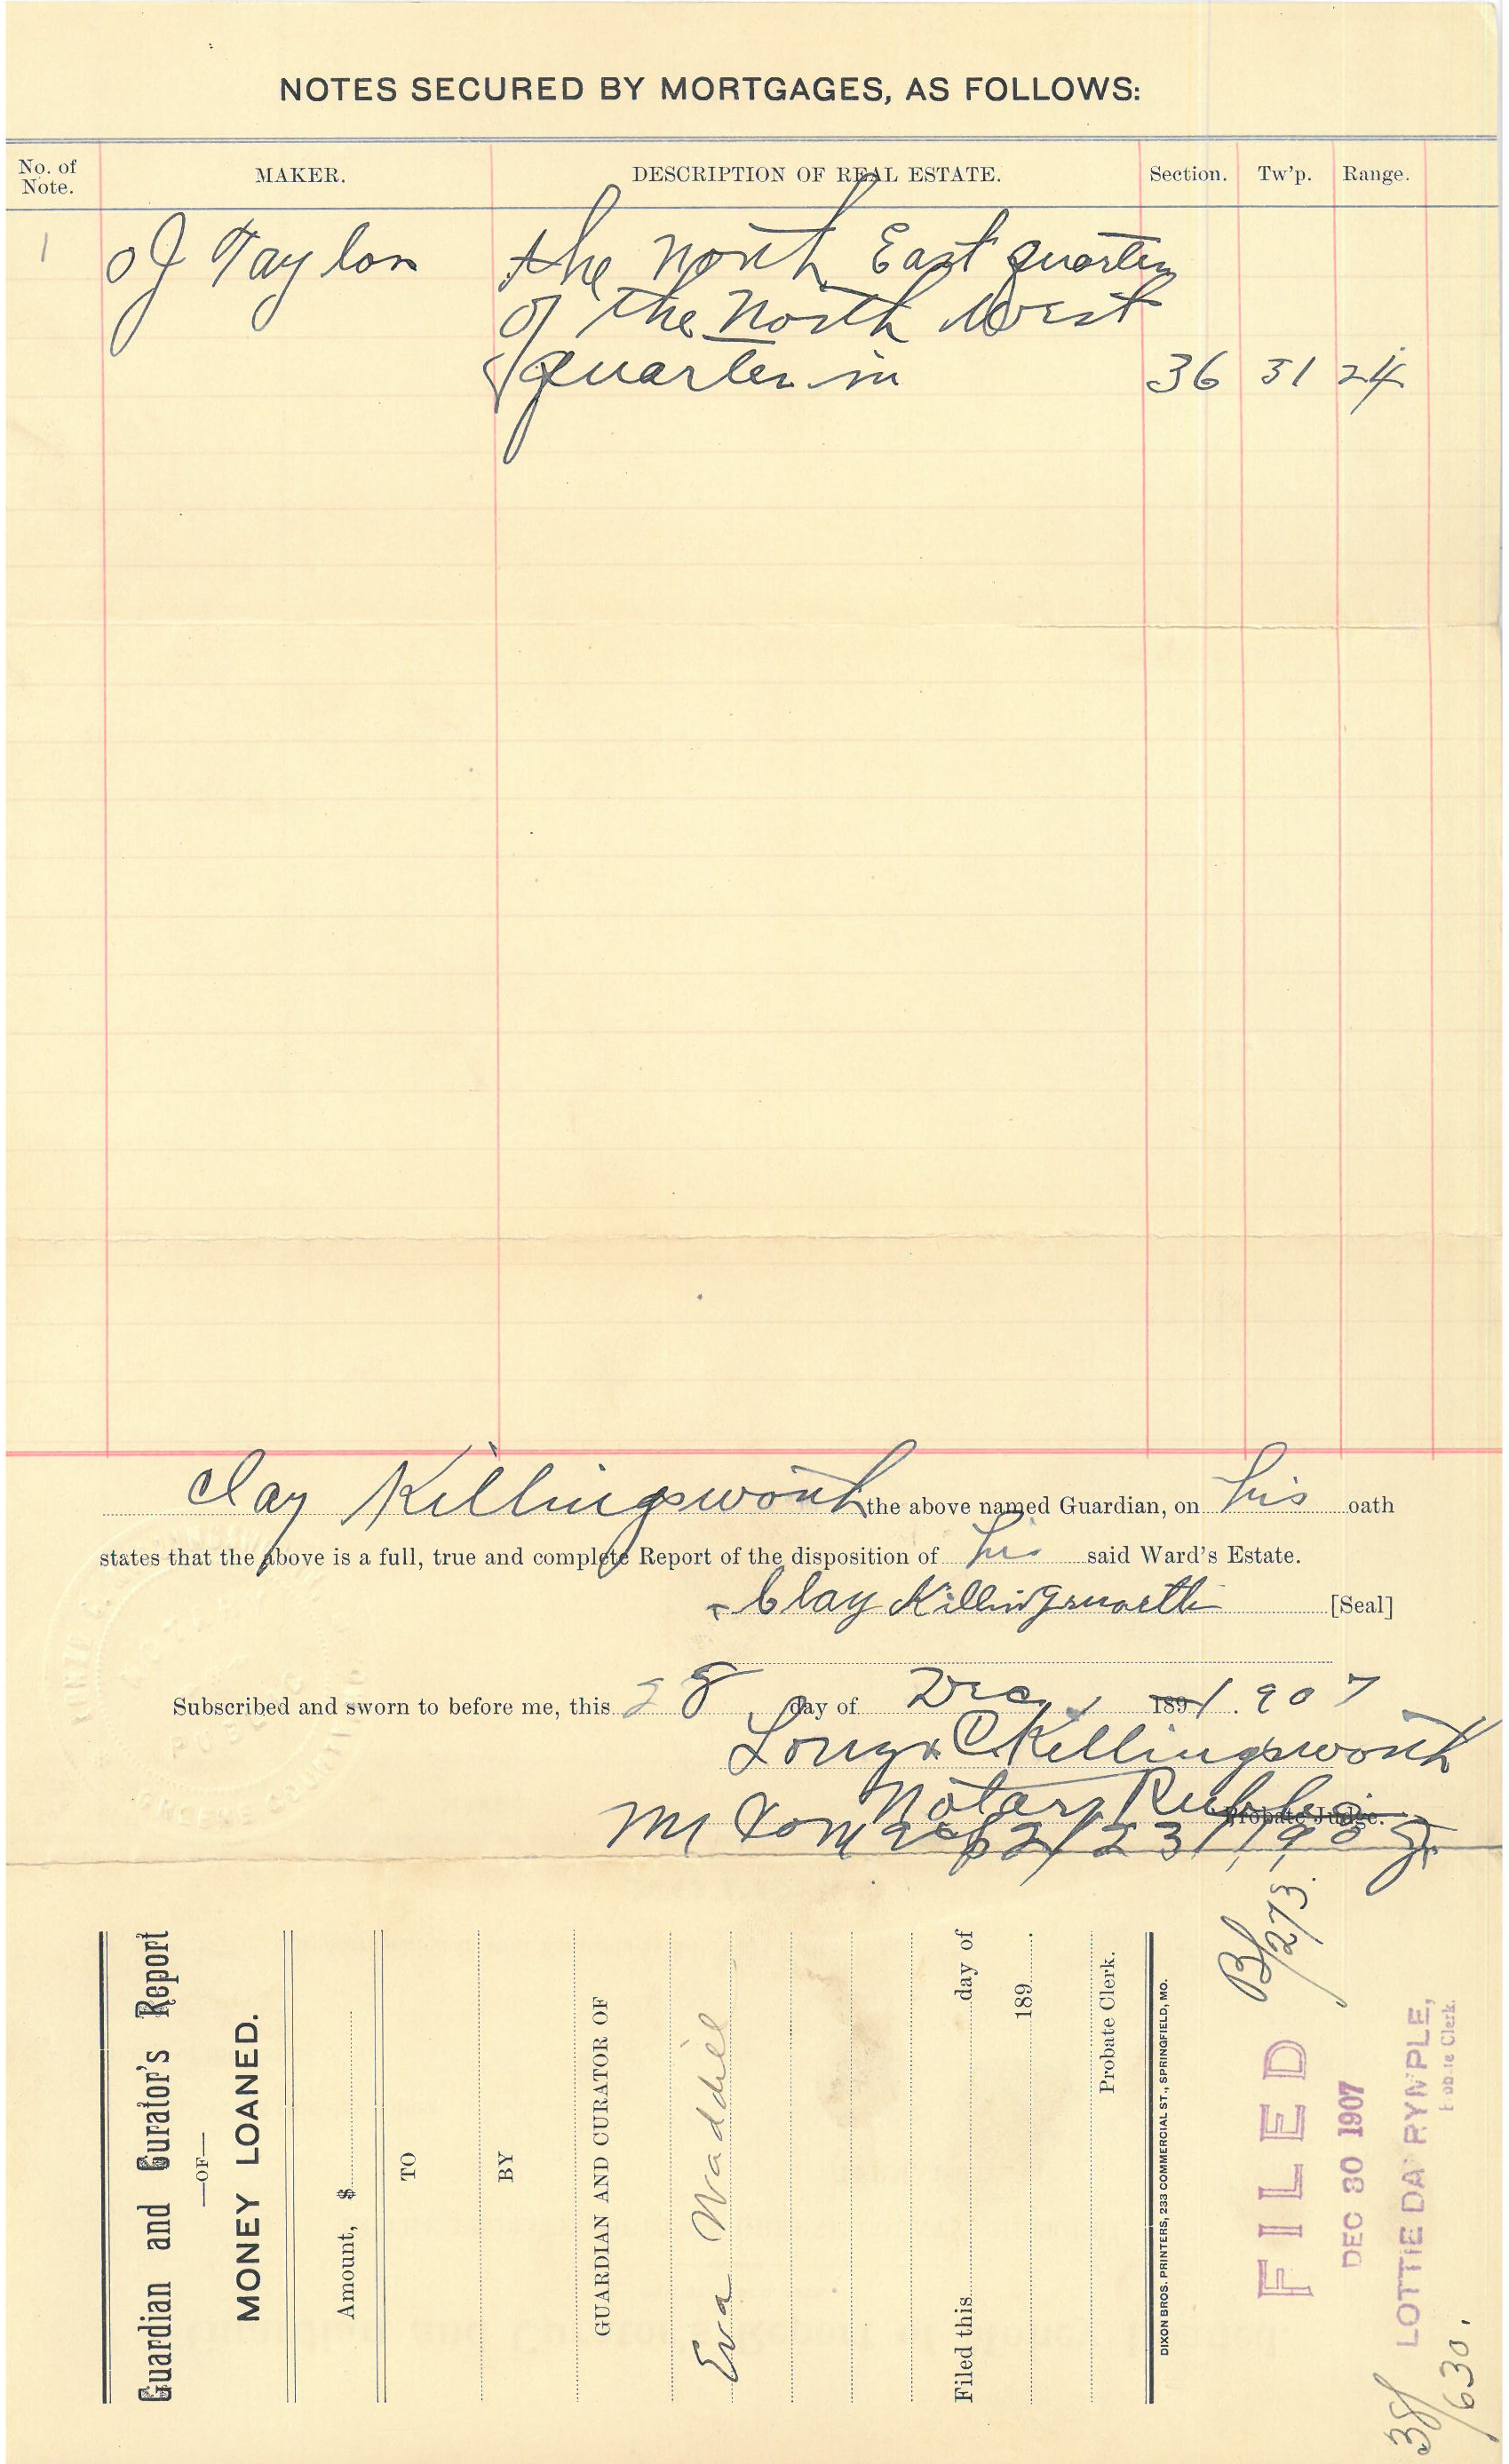 NOTES SECURED BY MORTGAGES, AS FOLLOWS:
No. of Note. MAKER. DESCRIPTION OF REAL ESTATE. Section. Tw'p. Range.
1 oJ Taylor the North East quarter
of the North West
quarter in 36 31 24
Clay Killingsworth the above named Guardian, on his oath
states that the above is a full, true and complete Report of the disposition of his said Ward's Estate.
Clay Killingsworth [Seal]
Subscribed and sworn to before me, this 28 day of Dec, 189 1.907
C Killingsworth
Notary Public Probate Judge.
Guardian and Curator's Report
—OF—
MONEY LOANED.
Amount, $
TO
BY
GUARDIAN AND CURATOR OF
Eva Waddill
Filed this day of
189 .
Probate Clerk.
DIXON BROS. PRINTERS, 233 COMMERCIAL ST., SPRINGFIELD, MO.
B/273.
FILED
DEC 30 1907
LOTTIE DA RYMPLE,
Clerk.
38/630.